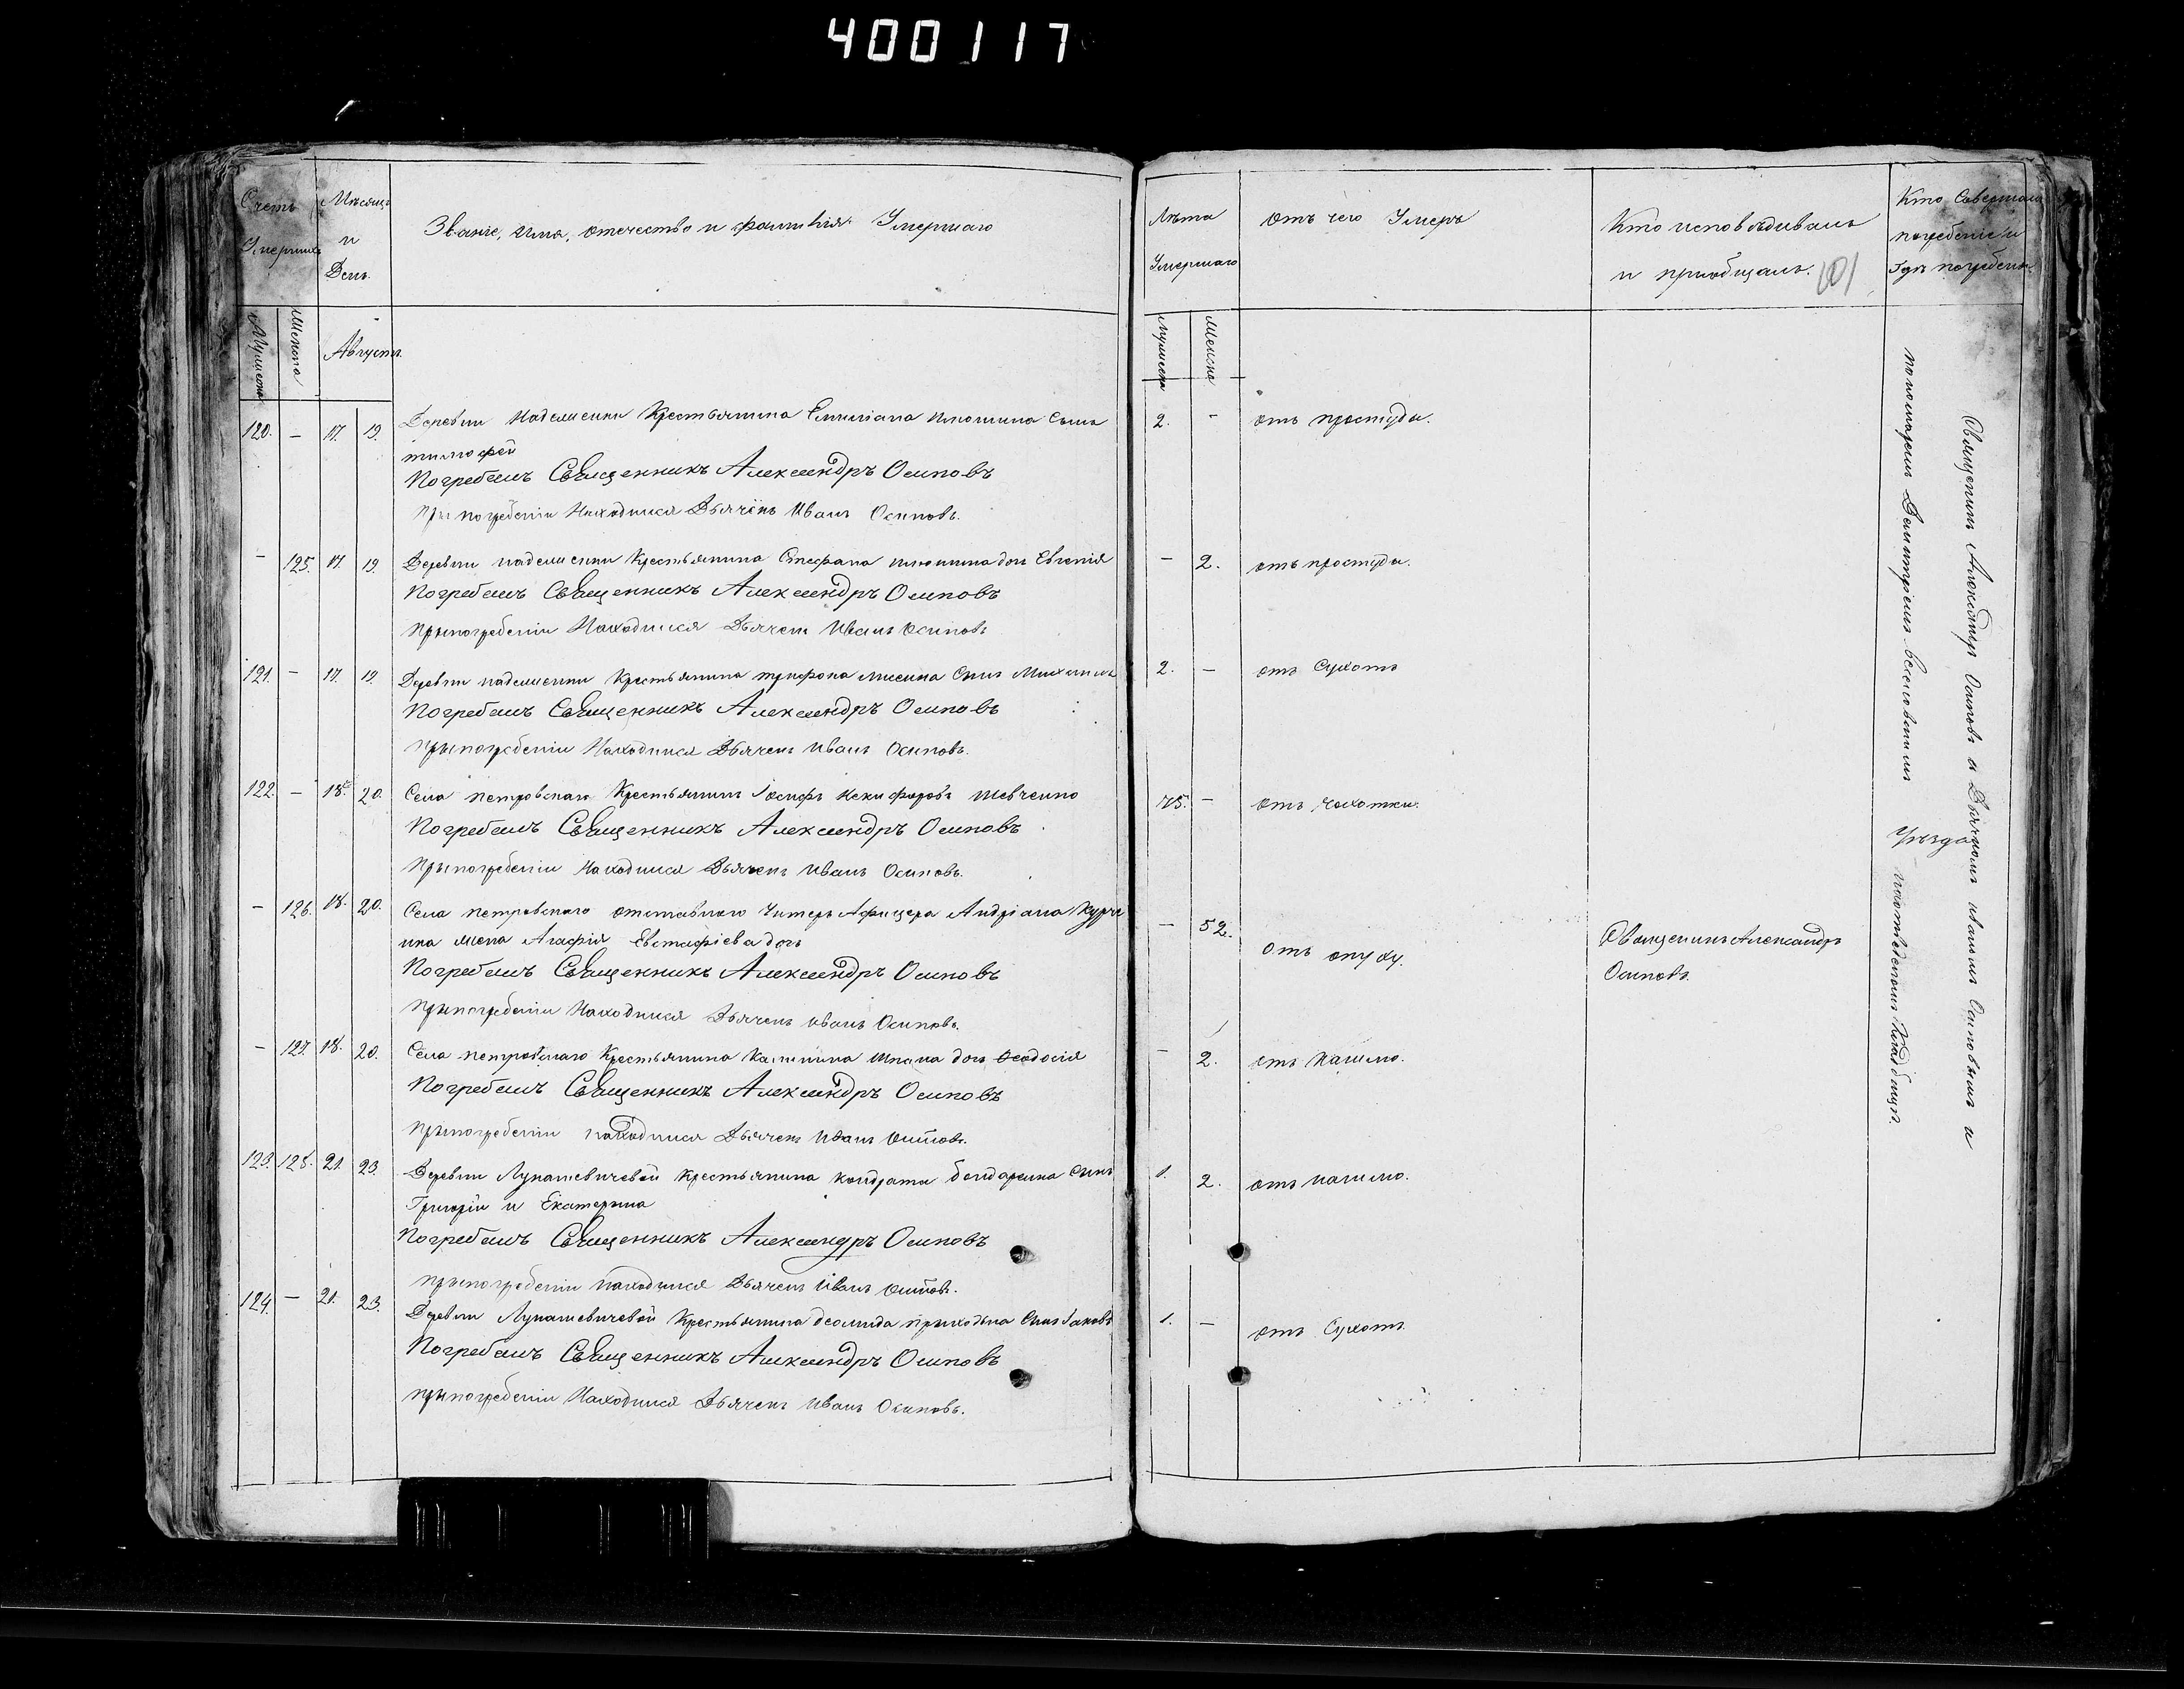 400117
Счетъ
Умершихъ
Мѣсяцъ
и
День.
Званіе, имя, отечество и фамилія Умершаго
Лѣта
Умершаго
отъ чего Умеръ
Кто исповѣдывалъ
и приобщалъ.
101
Кто Совершалъ
погребеніе и
Гдѣ погребены
Мужеска
Женска
Августъ.
Мужеска
Женска
120. — 17. 19. Деревни Надежевки Крестьянина Емиліана Сынъ
тимофей
2. - отъ простуды.
Погребалъ Священникъ Александръ Осиповъ
При погребеніи Находился Дьячекъ Иванъ Осиповъ.
— 125. 17. 19. Деревни Крестьянина Стефана дочь Евгенія
— 2. отъ простуды.
Погребалъ Священникъ Александръ Осиповъ
При погребеніи Находился Дьячекъ Иванъ Осиповъ
121. — 17. 19. Деревни Крестьянина трифона Сынъ Михаилъ
2. — отъ Сухотъ
Погребалъ Священникъ Александръ Осиповъ
При погребеніи Находился Дьячекъ Иванъ Осиповъ.
122. — 18. 20. Села петровскаго Крестьянинъ Іосифъ Никифоровъ шевченко
75. — отъ чахотки.
Погребалъ Священникъ Александръ Осиповъ
При погребеніи Находился Дьячекъ Иванъ Осиповъ.
— 126. 18. 20. Села петровскаго отставнаго Унтеръ Афицера Андріана
жена Агафія Евстафіева дочь
— 52. отъ опуху.
Священникъ Александръ
Осиповъ.
Погребалъ Священникъ Александръ Осиповъ
При погребеніи Находился Дьячекъ Иванъ Осиповъ.
— 127. 18. 20. Села петровскаго Крестьянина дочь Ѳеодосія
— 2. отъ кашлю.
Погребалъ Священникъ Александръ Осиповъ
При погребеніи находился Дьячекъ Иванъ Осиповъ.
123. 128. 21. 23. Деревни Лукашевичевой Крестьянина кондрата бондаренка Сынъ
Григорій и Екатерина
1. 2. отъ кашлю.
Погребалъ Священникъ Александръ Осиповъ
При погребеніи находился Дьячекъ Иванъ Осиповъ.
124. — 21. 23. Деревни Лукашевичевой Крестьянина приходька Сынъ Іаковъ
1. — отъ Сухотъ.
Погребалъ Священникъ Александръ Осиповъ
При погребеніи Находился Дьячекъ Иванъ Осиповъ.
Священникъ Александръ Осиповъ съ Дьячкомъ иваномъ Осиповымъ и
пономаремъ Димитріемъ
Кладбищѣ.